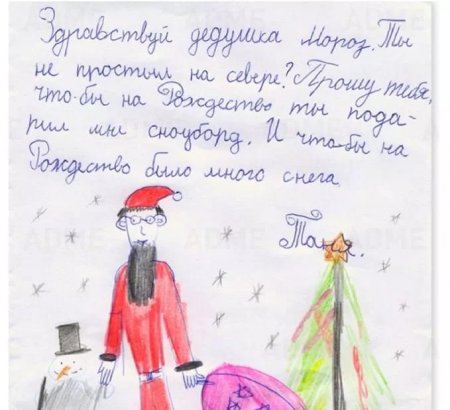 Здравствуй дедушка Мороз. Ты
не простыл на севере? Прошу тебя,
что-бы на Рождество ты пода-
рил мне сноуборд. И что-бы на
Рождество было много снега
Таня.